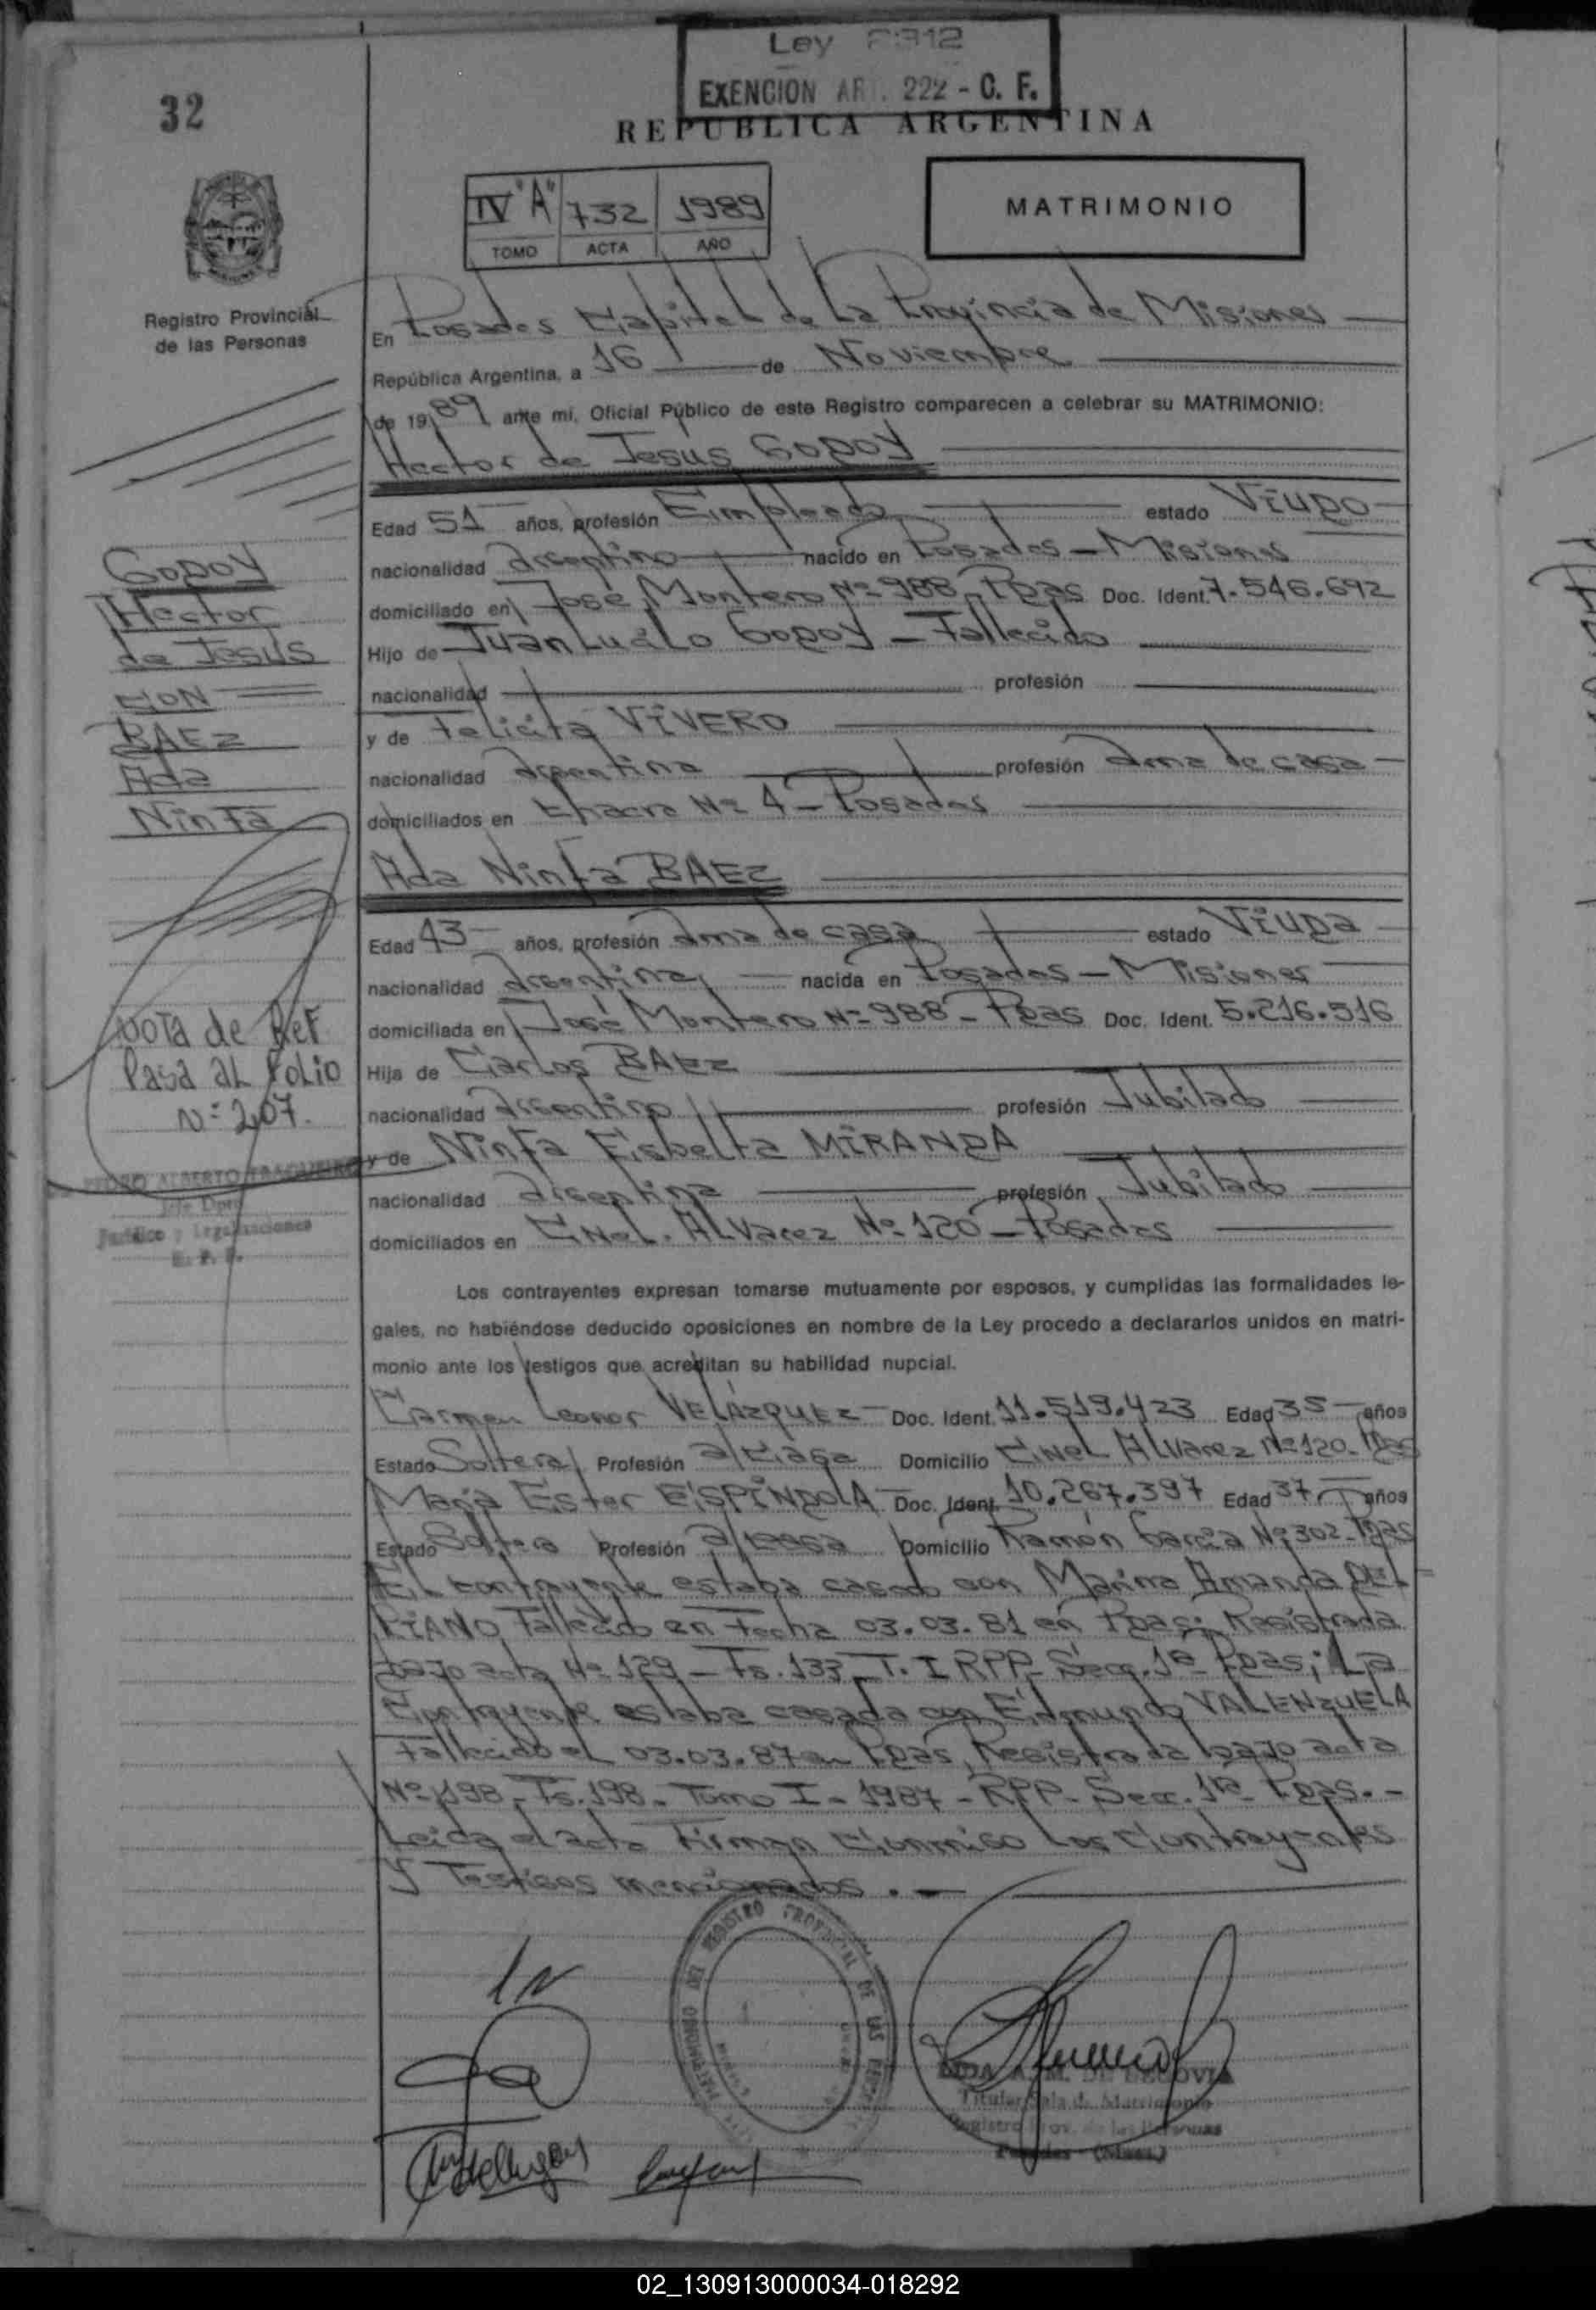 Ley 2312
EXENCION ART. 222 - C. F.
32
REPUBLICA ARGENTINA
IV "A" 732 1989
TOMO ACTA AÑO
MATRIMONIO
Registro Provincial
de las Personas
En Posadas Capital de La Provincia de Misiones
República Argentina, a 16 de Noviembre
de 1989 ante mí, Oficial Público de este Registro comparecen a celebrar su MATRIMONIO:
Hector de Jesus GODOY
Edad 51 años, profesión Empleado estado Viudo
nacionalidad Argentino nacido en Posadas - Misiones
domiciliado en José Montero Nº 988 - Pdas Doc. Ident. 7.546.692
Hijo de Juan Lucilo GODOY - Fallecido
nacionalidad profesión
y de Felicita VIVERO
nacionalidad Argentina profesión Ama de casa
domiciliados en Chacra Nº 4 - Posadas
Ada Ninfa BAEZ
Edad 43 años, profesión Ama de casa estado Viuda
nacionalidad Argentina nacida en Posadas - Misiones
domiciliada en José Montero Nº 988 - Pdas Doc. Ident. 5.216.516
Hija de Carlos BAEZ
nacionalidad Argentino profesión Jubilado
y de Ninfa Eisbelta MIRANDA
nacionalidad Argentina profesión Jubilado
domiciliados en Cnel. Alvarez Nº 120 - Posadas
GODOY
Hector
de Jesus
CON
BAEZ
Ada
Ninfa
NOTA de Ref
Pasa al Folio
Nº 207.
PEDRO ALBERTO
Jefe Dpto
Jurídico y Legalizaciones
R. P. P.
Los contrayentes expresan tomarse mutuamente por esposos, y cumplidas las formalidades le-
gales, no habiéndose deducido oposiciones en nombre de la Ley procedo a declararlos unidos en matri-
monio ante los testigos que acreditan su habilidad nupcial.
Carmen Leonor VELÁZQUEZ Doc. Ident. 11.519.423 Edad 35 años
Estado Soltera Profesión a/casa Domicilio Cnel Alvarez Nº 120 - Pdas
María Ester ESPÍNDOLA Doc. Ident. 10.267.397 Edad 37 años
Estado Soltera Profesión a/casa Domicilio Ramón García Nº 302 - Pdas
El contrayente estaba casado con Marina Amanda DEL
PIANO Fallecido en Fecha 03.03.81 en Pdas; Registrada
bajo acta Nº 129 - Fs. 133 - T. I RPP - Secc. 1ª Pdas; La
Contrayente estaba casada con Edmundo VALENZUELA
fallecido el 03.03.87 en Pdas, Registrada bajo acta
Nº 198 - Fs. 198 - Tomo I - 1987 - RPP - Secc. 1ra Pdas. -
Leida el acta Firman Conmigo Los Contrayentes
Y Testigos mencionados. -
REGISTRO PROVINCIAL DE LAS PERSONAS
A. M. DE SEGOVIA
Titular Sala de Matrimonio
Registro Prov. de las Personas
Posadas (Mnes.)
02_130913000034-018292